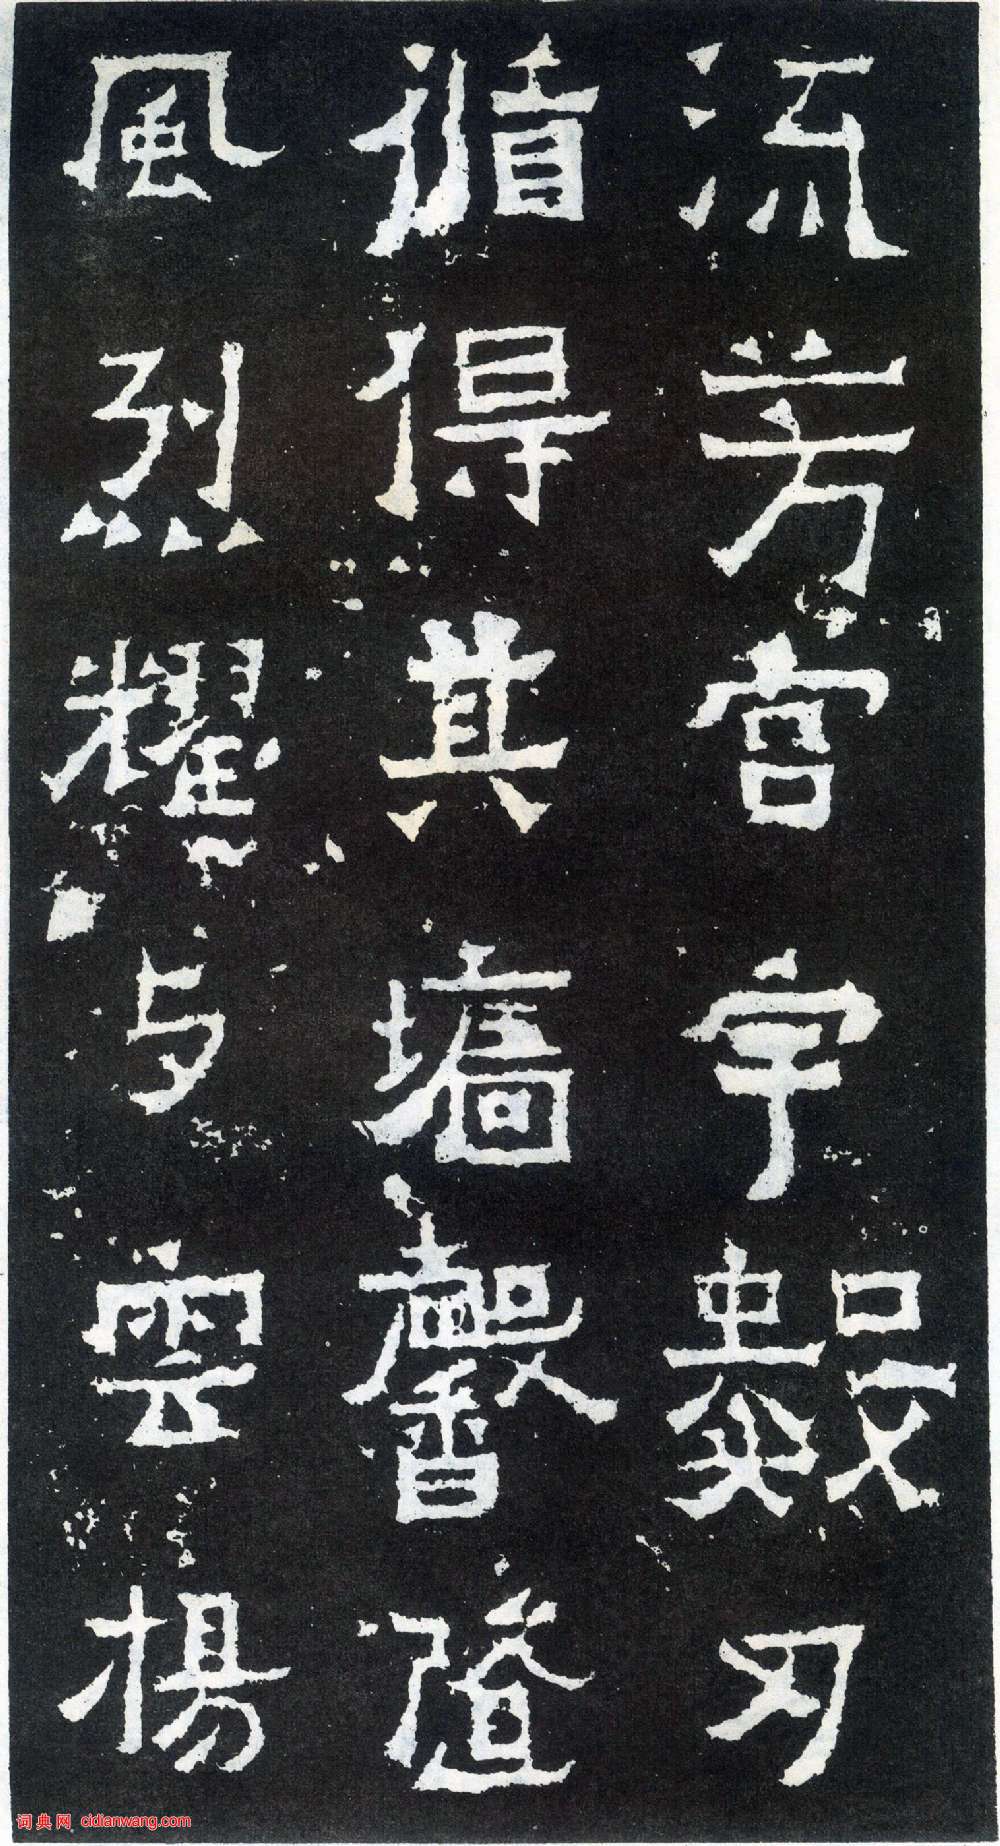 流芳宮宇數刃
循得其墻馨隨
風烈耀与雲揚
词典网 cidianwang.com